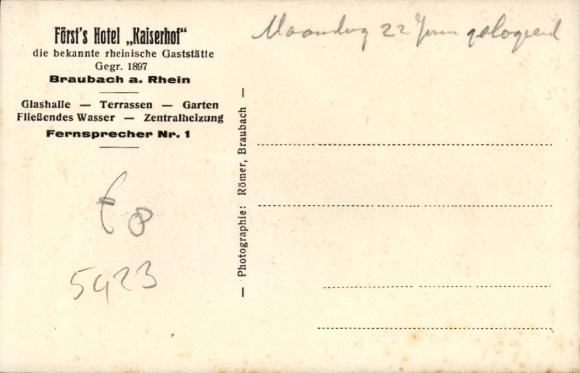 Först's Hotel „Kaiserhof"
die bekannte rheinische Gaststätte
Gegr. 1897
Braubach a. Rhein
Glashalle — Terrassen — Garten
Fließendes Wasser — Zentralheizung
Fernsprecher Nr. 1
— Photographie: Römer, Braubach —
Maandag 22 Juni gelogeerd
5423